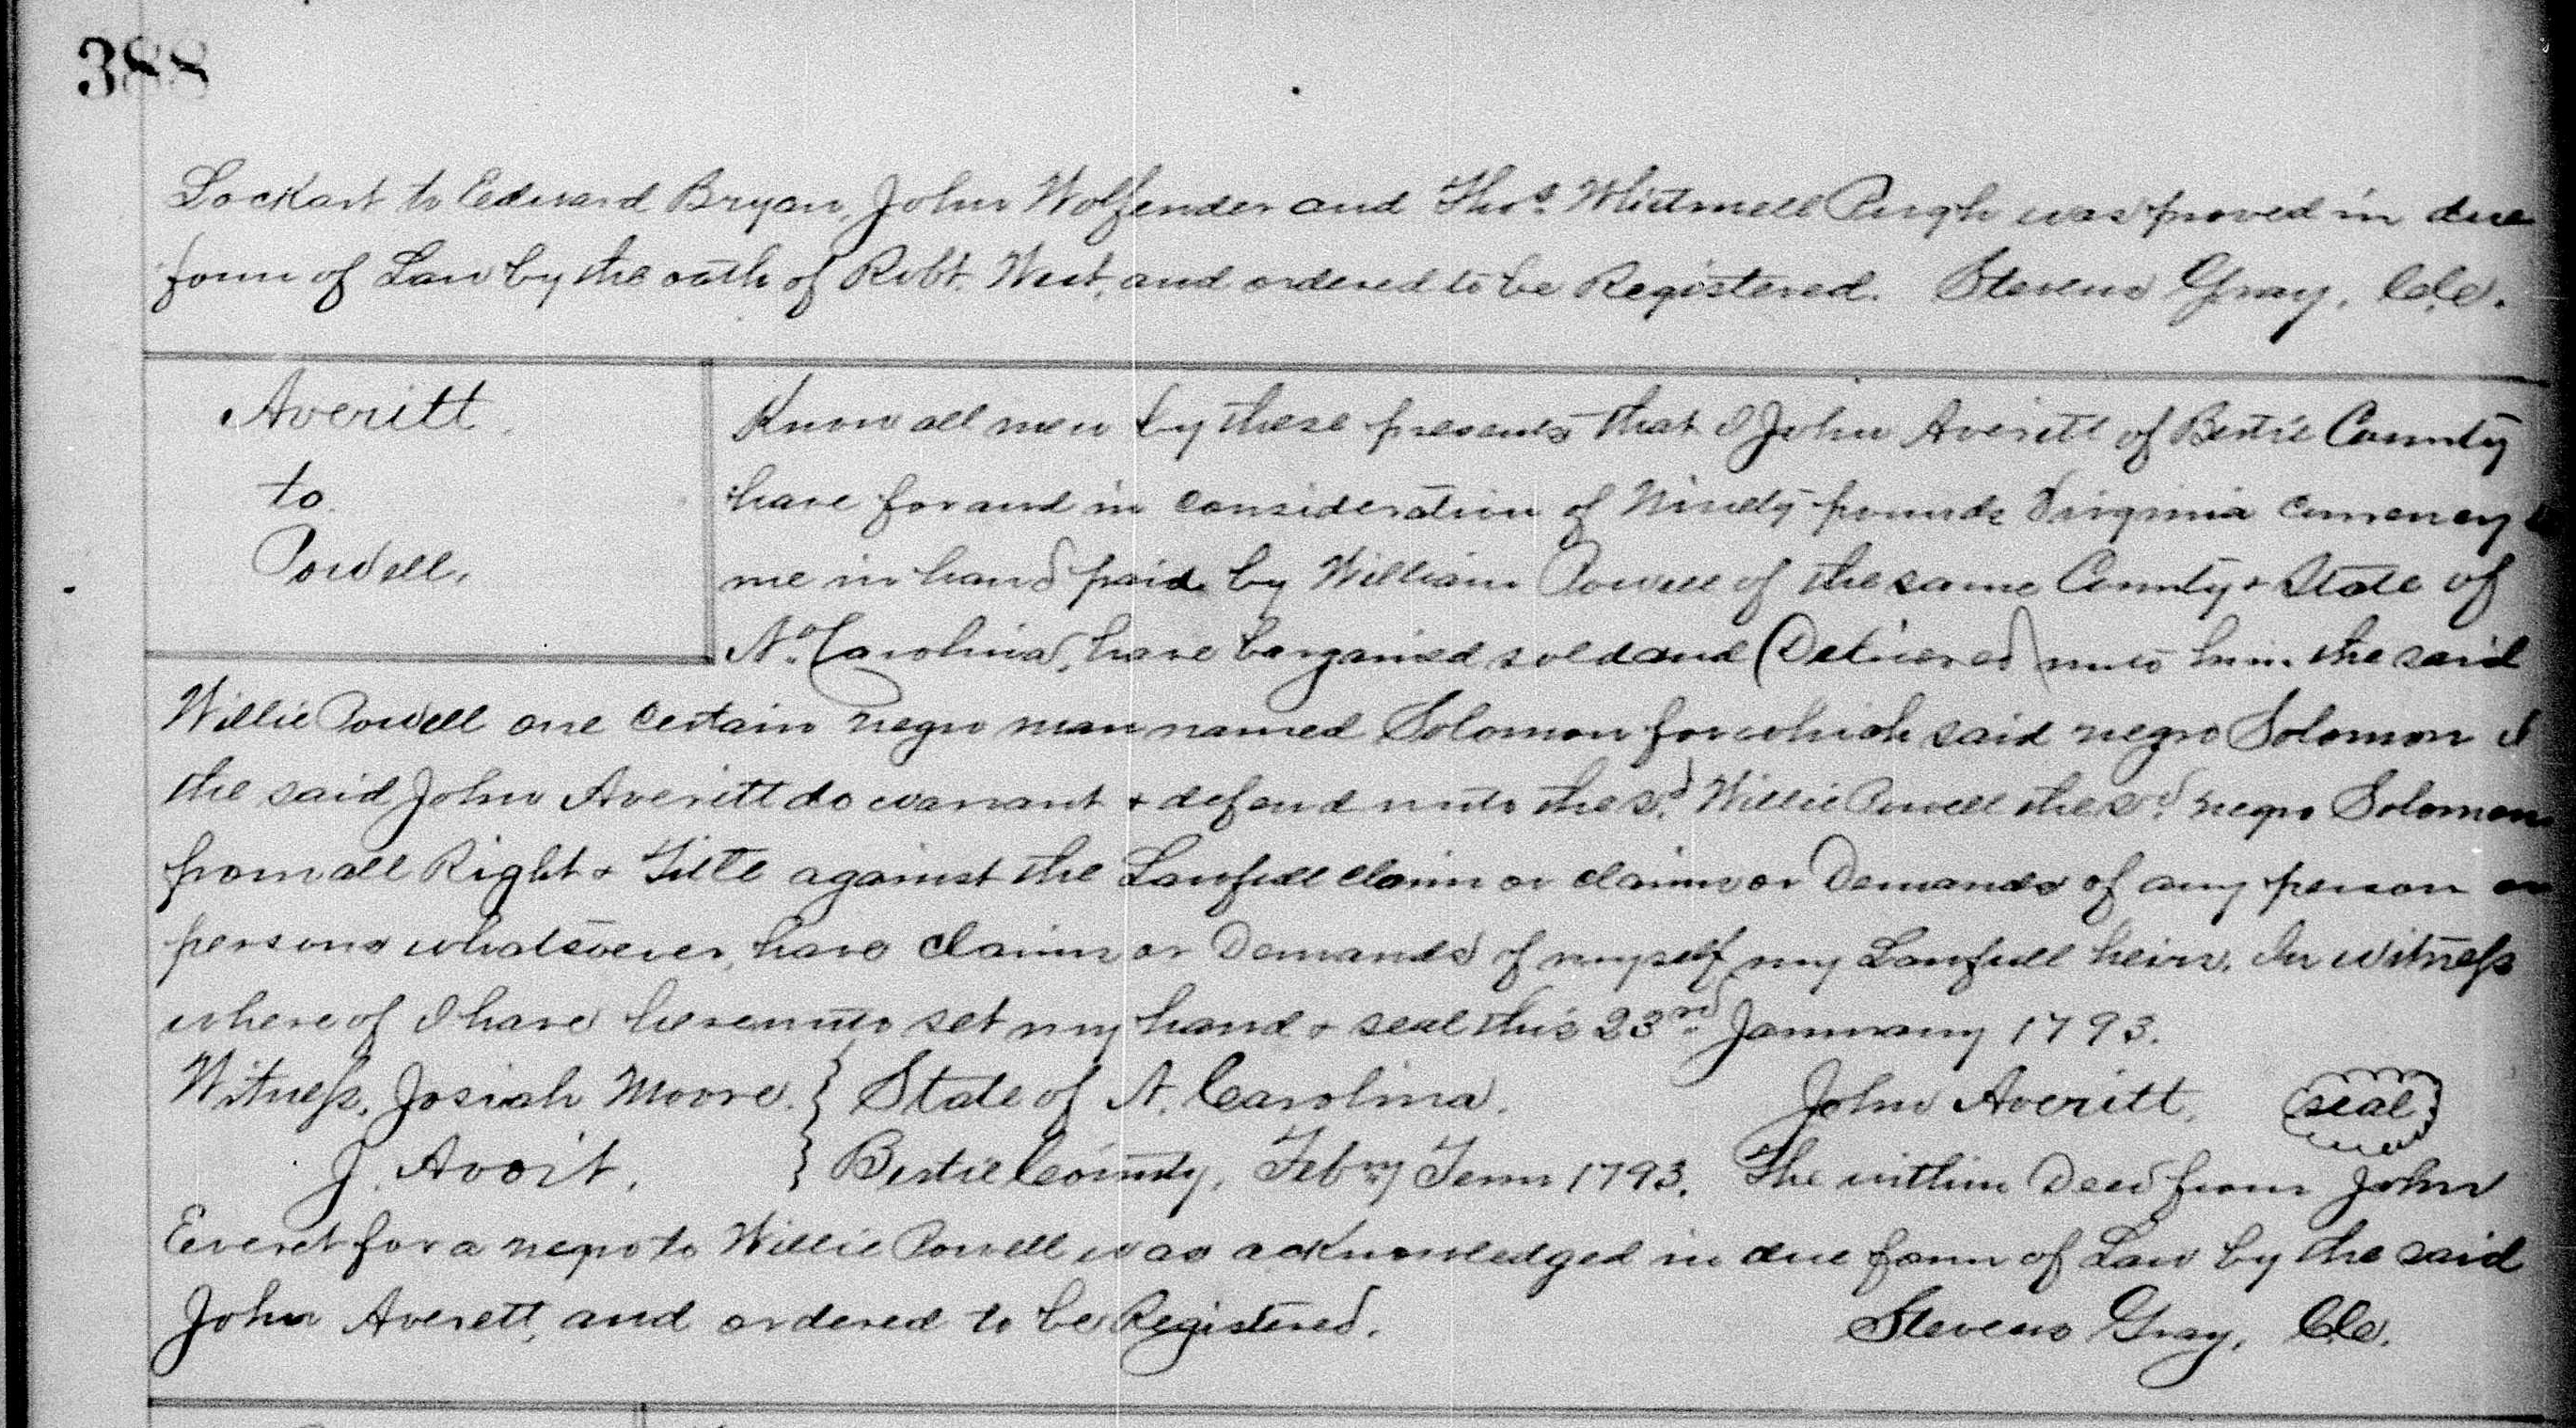 388
Lockart to Edward Bryan, John Wolfender and Thos. Whitmell Pugh was proved in due
form of Law by the oath of Robt. West, and ordered to be Registered. Stevens Gray, C.C.
Averitt
to
Powell,
Know all men by these presents that I John Averitt of Bertie County
have for and in consideration of Ninety pounds Virginia currency to
me in hand paid by William Powell of the same County & State of
No. Carolina, have bargained sold and (Delivered) unto him the said
Willie Powell one certain negro man named Solomon for which said negro Solomon I
the said John Averitt do warrant & defend unto the sd. Willie Powell the sd. negro Solomon
from all Right & Title against the Lawfull claim or claims or Demands of any person or
persons whatsoever, have claim or Demands of myself my Lawfull heirs. In witness
where of I have hereunto set my hand & seal this 23rd January 1793.
Witness, Josiah Moore. } State of N. Carolina. John Averitt, seal
J. Avoit. } Bertie County, Febry Term 1793. The within Deed from John
Everet for a negro to Willie Powell was acknowledged in due form of Law by the said
John Averett, and ordered to be Registered. Stevens Gray, C.C.